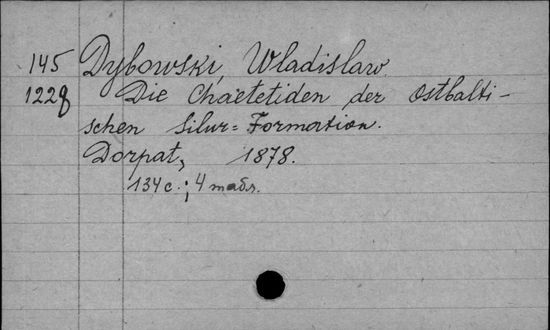 145 Dybowski, Wladislaw.
1228 Die Chaetetiden der Ostbalti-
schen Silur=Formation.
Dorpat, 1878.
134 c.; 4 табл.